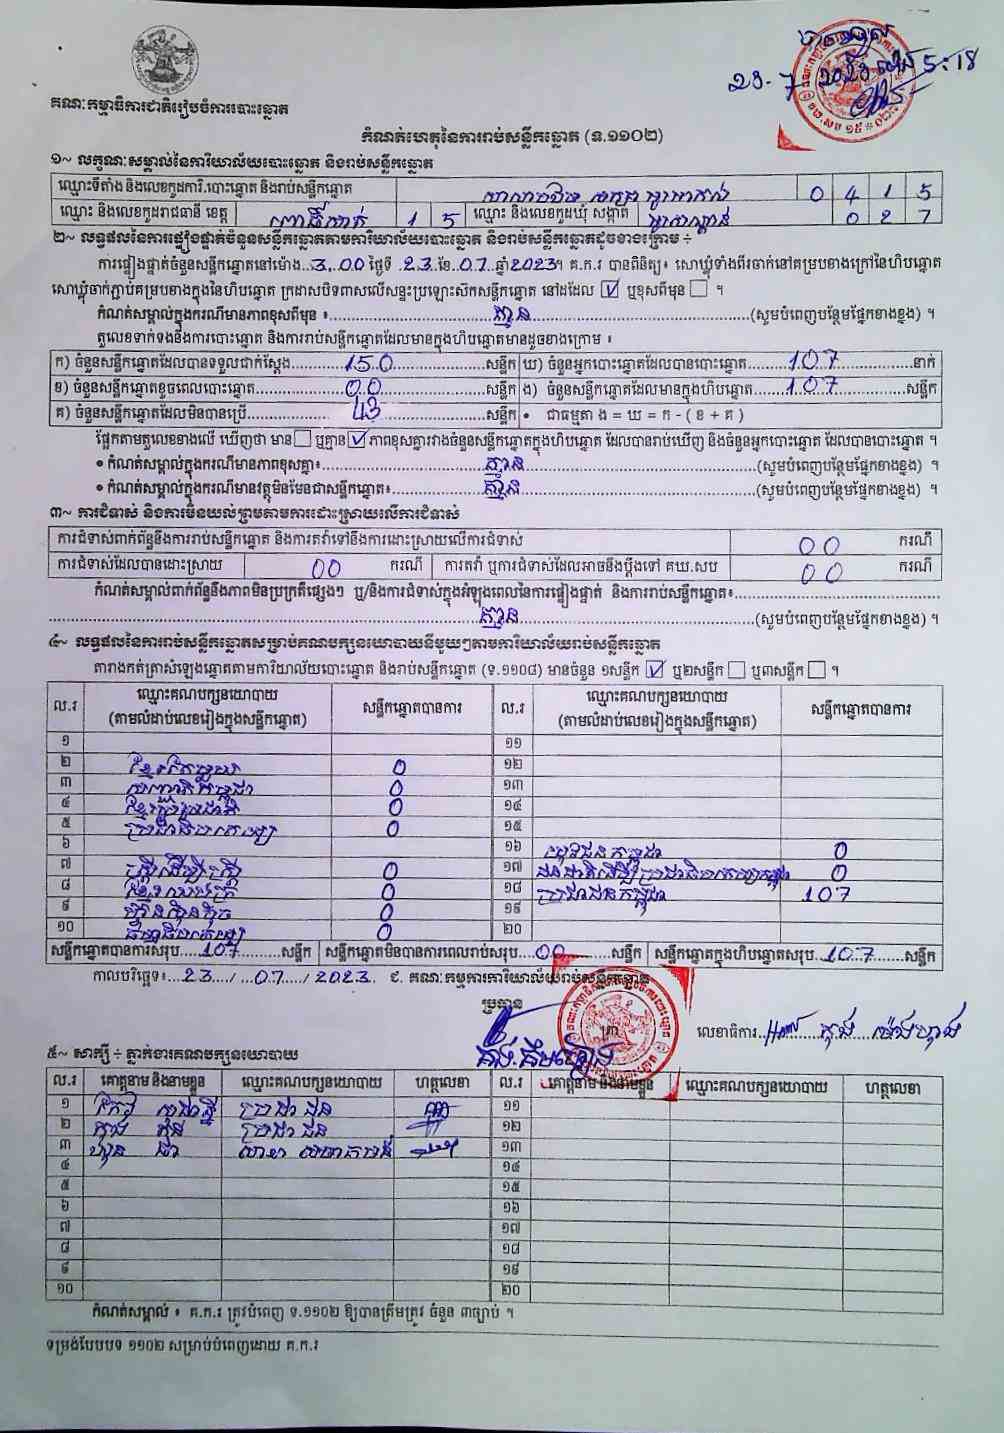 23-7-2023 ម៉ោង 5:18
គណៈកម្មាធិការជាតិរៀបចំការបោះឆ្នោត
កំណត់ហេតុនៃការរាប់សន្លឹកឆ្នោត (ទ.១១០២)
១~ លក្ខណៈសម្គាល់នៃការិយាល័យបោះឆ្នោត និងរាប់សន្លឹកឆ្នោត
ឈ្មោះទីតាំង និងលេខកូដការិ.បោះឆ្នោត និងរាប់សន្លឹកឆ្នោត 0 4 1 5
ឈ្មោះ និងលេខកូដរាជធានី ខេត្ត ពោធិ៍សាត់ 1 5 ឈ្មោះ និងលេខកូដឃុំ សង្កាត់ 0 2 7
២~ លទ្ធផលនៃការផ្ទៀងផ្ទាត់ចំនួនសន្លឹកឆ្នោតតាមការិយាល័យបោះឆ្នោត និងរាប់សន្លឹកឆ្នោតដូចខាងក្រោម ÷
ការផ្ទៀងផ្ទាត់ចំនួនសន្លឹកឆ្នោតនៅម៉ោង 3.00 ថ្ងៃទី 23 ខែ 07 ឆ្នាំ 2023។ គ.ក.រ បានពិនិត្យ៖ សោឃ្លុំទាំងពីរចាក់នៅគម្របខាងក្រៅនៃហិបឆ្នោត
សោឃ្លុំចាក់ភ្ជាប់គម្របខាងក្នុងនៃហិបឆ្នោត ក្រដាសបិទពាសលើសន្ទះប្រឡោះស៊កសន្លឹកឆ្នោត នៅដដែល ☑ ឬខុសពីមុន ☐ ។
កំណត់សម្គាល់ក្នុងករណីមានភាពខុសពីមុន ៖ គ្មាន (សូមបំពេញបន្ថែមផ្នែកខាងខ្នង) ។
តួលេខទាក់ទងនឹងការបោះឆ្នោត និងការរាប់សន្លឹកឆ្នោតដែលមានក្នុងហិបឆ្នោតមានដូចខាងក្រោម ៖
ក) ចំនួនសន្លឹកឆ្នោតដែលបានទទួលជាក់ស្តែង 150 សន្លឹក ឃ) ចំនួនអ្នកបោះឆ្នោតដែលបានបោះឆ្នោត 107 នាក់
ខ) ចំនួនសន្លឹកឆ្នោតខូចពេលបោះឆ្នោត 00 សន្លឹក ង) ចំនួនសន្លឹកឆ្នោតដែលមានក្នុងហិបឆ្នោត 107 សន្លឹក
គ) ចំនួនសន្លឹកឆ្នោតដែលមិនបានប្រើ 43 សន្លឹក • ជាធម្មតា ង = ឃ = ក - ( ខ + គ )
ផ្អែកតាមតួលេខខាងលើ ឃើញថា មាន ☐ ឬគ្មាន ☑ ភាពខុសគ្នារវាងចំនួនសន្លឹកឆ្នោតក្នុងហិបឆ្នោត ដែលបានរាប់ឃើញ និងចំនួនអ្នកបោះឆ្នោត ដែលបានបោះឆ្នោត ។
• កំណត់សម្គាល់ក្នុងករណីមានភាពខុសគ្នា៖ គ្មាន (សូមបំពេញបន្ថែមផ្នែកខាងខ្នង) ។
• កំណត់សម្គាល់ក្នុងករណីមានវត្ថុមិនមែនជាសន្លឹកឆ្នោត៖ គ្មាន (សូមបំពេញបន្ថែមផ្នែកខាងខ្នង) ។
៣~ ការជំទាស់ និងការមិនយល់ព្រមតាមការដោះស្រាយលើការជំទាស់
ការជំទាស់ពាក់ព័ន្ធនឹងការរាប់សន្លឹកឆ្នោត និងការតវ៉ាទៅនឹងការដោះស្រាយលើការជំទាស់ 00 ករណី
ការជំទាស់ដែលបានដោះស្រាយ 00 ករណី ការតវ៉ា ឬការជំទាស់ដែលអាចនឹងប្តឹងទៅ គឃ.សប 00 ករណី
កំណត់សម្គាល់ពាក់ព័ន្ធនឹងភាពមិនប្រក្រតីផ្សេងៗ ឬ/និងការជំទាស់ក្នុងអំឡុងពេលនៃការផ្ទៀងផ្ទាត់ និងការរាប់សន្លឹកឆ្នោត៖
គ្មាន (សូមបំពេញបន្ថែមផ្នែកខាងខ្នង) ។
៤~ លទ្ធផលនៃការរាប់សន្លឹកឆ្នោតសម្រាប់គណបក្សនយោបាយនីមួយៗតាមការិយាល័យរាប់សន្លឹកឆ្នោត
តារាងកត់ត្រាសំឡេងឆ្នោតតាមការិយាល័យបោះឆ្នោត និងរាប់សន្លឹកឆ្នោត (ទ.១១០៨) មានចំនួន ១សន្លឹក ☑ ឬ២សន្លឹក ☐ ឬ៣សន្លឹក ☐ ។
ល.រ ឈ្មោះគណបក្សនយោបាយ (តាមលំដាប់លេខរៀងក្នុងសន្លឹកឆ្នោត) សន្លឹកឆ្នោតបានការ ល.រ ឈ្មោះគណបក្សនយោបាយ (តាមលំដាប់លេខរៀងក្នុងសន្លឹកឆ្នោត) សន្លឹកឆ្នោតបានការ
១ ១១
២ ខ្មែរតែមួយ 0 ១២
៣ 0 ១៣
៤ ខ្មែររួបរួមជាតិ 0 ១៤
៥ ប្រជាធិបតេយ្យ 0 ១៥
៦ ១៦ 0
៧ ស្ត្រីដើម្បីស្ត្រី 0 ១៧ 0
៨ 0 ១៨ ប្រជាជនកម្ពុជា 107
៩ ហ្វ៊ុនស៊ិនប៉ិច 0 ១៩
១០ ធម្មាធិបតេយ្យ 0 ២០
សន្លឹកឆ្នោតបានការសរុប 107 សន្លឹក សន្លឹកឆ្នោតមិនបានការពេលរាប់សរុប 00 សន្លឹក សន្លឹកឆ្នោតក្នុងហិបឆ្នោតសរុប 107 សន្លឹក
កាលបរិច្ឆេទ៖ 23 / 07 / 2023 ជ. គណៈកម្មការការិយាល័យរាប់សន្លឹកឆ្នោត
ប្រធាន
លេខាធិការ
៥~ សាក្សី ÷ ភ្នាក់ងារគណបក្សនយោបាយ
ល.រ គោត្តនាម និងនាមខ្លួន ឈ្មោះគណបក្សនយោបាយ ហត្ថលេខា ល.រ គោត្តនាម និងនាមខ្លួន ឈ្មោះគណបក្សនយោបាយ ហត្ថលេខា
១ ប្រជាជន ១១
២ ប្រជាជន ១២
៣ ១៣
៤ ១៤
៥ ១៥
៦ ១៦
៧ ១៧
៨ ១៨
៩ ១៩
១០ ២០
កំណត់សម្គាល់ ៖ គ.ក.រ ត្រូវបំពេញ ទ.១១០២ ឱ្យបានត្រឹមត្រូវ ចំនួន ៣ច្បាប់ ។
ទម្រង់បែបបទ ១១០២ សម្រាប់បំពេញដោយ គ.ក.រ